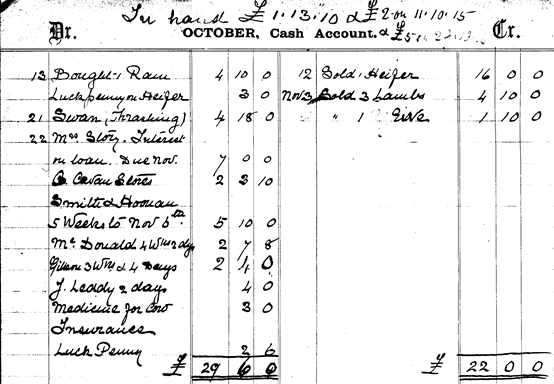 In hand £ 1.13.10 & £2 on 11.10.15
Dr. OCTOBER, Cash Account. & £5 on Cr.
13 Bought 1 Ram 4 10 0
Luckpenny on Heifer 3 0
21 Swan (Thrashing) 4 18 0
22 Mrs Story. Interest
on loan. Due Nov. 7 0 0
Cavan Stores 2 3 10
Smith & Hoonan
5 Weeks to Nov 6th 5 10 0
Mc Donald 4 Wks 2 dys 2 7 8
3 Wks & 4 Days 2 0
J. Leddy 2 days 4 0
Medicine for Cow 3 0
Insurance
Luck Penny 2 6
£ 29 6 0
12 Sold 1 Heifer 16 0 0
Nov 3 Sold 3 Lambs 4 10 0
" 1 Ewe 1 10 0
£ 22 0 0